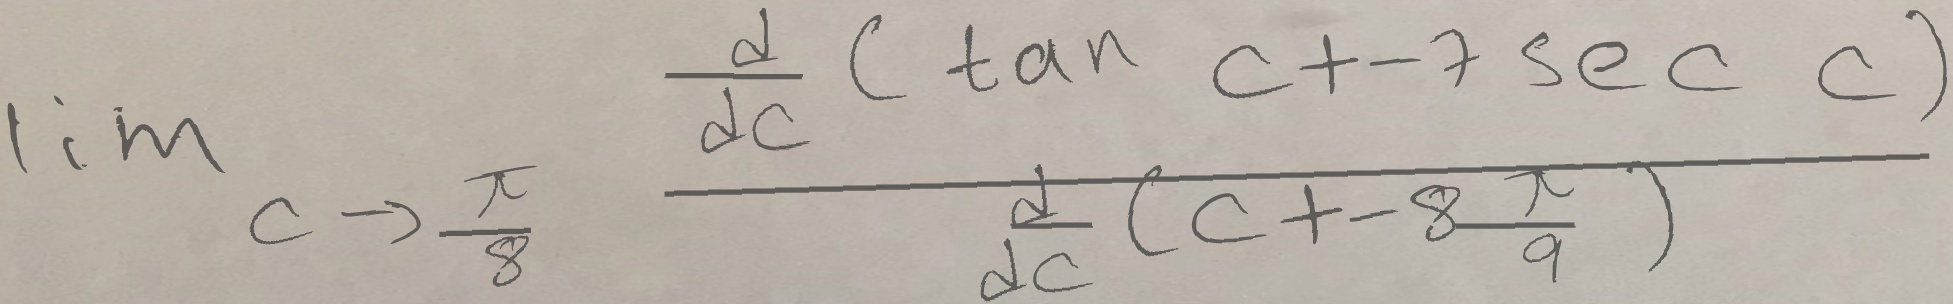 \lim_{c \to \frac{\pi}{8}} \frac{\frac{d}{dc}(\tan c + -7 \sec c)}{\frac{d}{dc}(c + -8\frac{\pi}{9})}